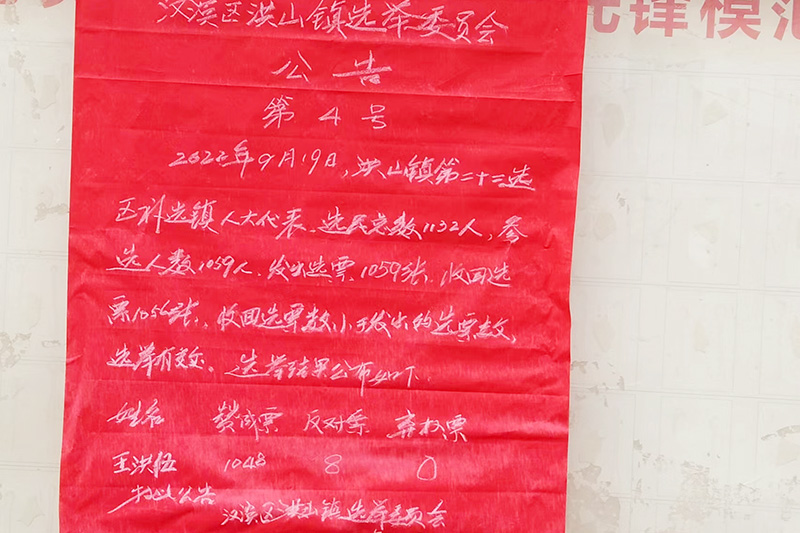 汉滨区洪山镇选举委员会
公告
第4号
2022年9月19日，洪山镇第二十二选
区补选镇人大代表，选民总数1132人，参
选人数1059人，发出选票1059张，收回选
票1056张，收回选票数小于发出的选票数，
选举有效。选举结果公布如下
姓名 赞成票 反对票 弃权票
王洪伍 1048 8 0
特此公告
汉滨区洪山镇选举委员会
先锋模范